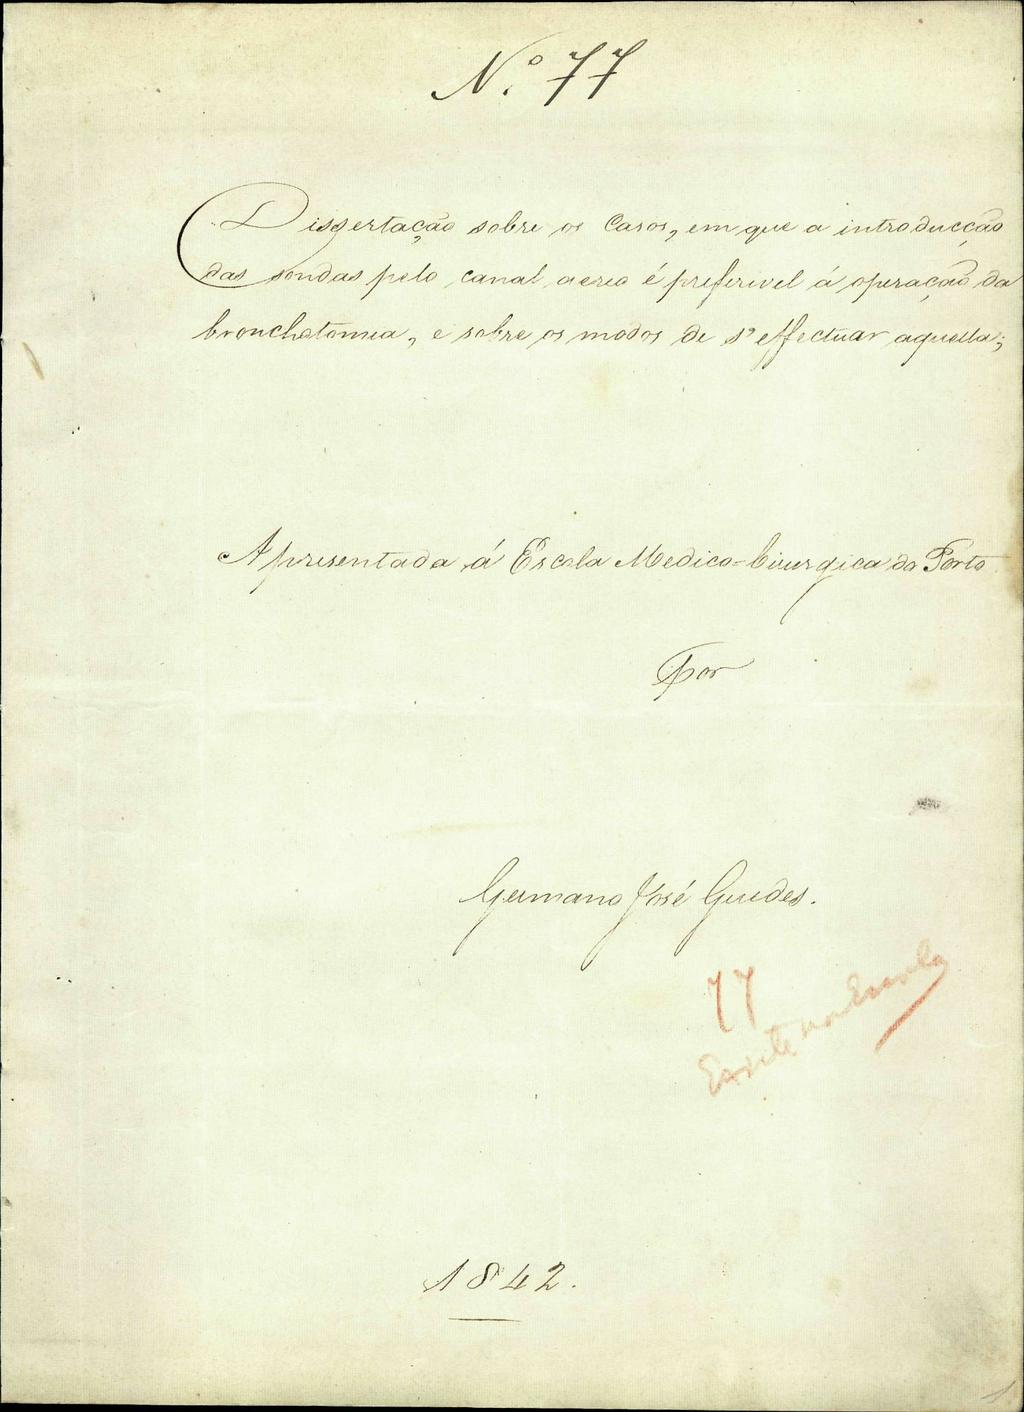 N.º 77
Dissertação sobre os Casos, em que a introducção
das sondas pelo canal aereo é preferivel á operação da
bronchotomia, e sobre os modos de s'effectuar aquella;
Apresentada á Escola Medico-Cirurgica do Porto
Por
Germano José Guedes.
77
Existe na Escola
1842.
1